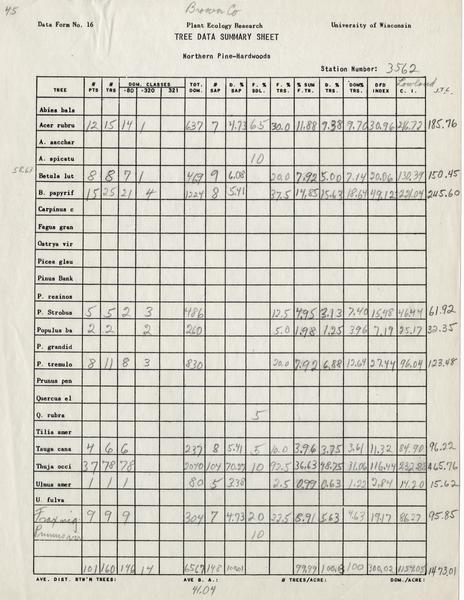 45 Brown Co
Data Form No. 16 Plant Ecology Research University of Wisconsin
TREE DATA SUMMARY SHEET
Northern Pine-Hardwoods
Station Number: 3562
Lowland
TREE # PTS # TRS DOM. CLASSES -80 -320 321 TOT. DOM. # SAP D. % SAP F. % SDL. F. % TRS. % SUM F. TR. D. % TRS. DOM% TRS. DFD INDEX C. I. J.T.C.
Abies bals
Acer rubru 12 15 14 1 637 7 4.73 65 30.0 11.88 9.38 9.70 30.96 216.72 185.76
A. sacchar
A. spicatu 10
Betula lut 8 8 7 1 469 9 6.08 20.0 7.92 5.00 7.14 20.06 130.39 150.45
B. papyrif 15 25 21 4 1224 8 5.41 37.5 14.85 15.63 18.64 49.12 221.04 245.60
Carpinus c
Fagus gran
Ostrya vir
Picea glau
Pinus Bank
P. resinos
P. Strobus 5 5 2 3 486 12.5 4.95 3.13 7.40 15.48 46.44 61.92
Populus ba 2 2 2 260 5.0 1.98 1.25 3.96 7.19 25.17 32.35
P. grandid
P. tremulo 8 11 8 3 830 20.0 7.92 6.88 12.64 27.44 96.04 123.48
Prunus pen
Quercus el
Q. rubra 5
Tilia amer
Tsuga cana 4 6 6 237 8 5.41 5 10.0 3.96 3.75 3.61 11.32 84.90 96.22
Thuja occi 37 78 78 2040 104 70.27 10 92.5 36.63 48.75 31.06 116.44 232.88 465.76
Ulmus amer 1 1 1 80 5 3.38 2.5 0.99 0.63 1.22 2.84 14.20 15.62
U. fulva
Frax nig 9 9 9 304 7 4.73 20 22.5 8.91 5.63 4.63 19.17 86.27 95.85
10
101 160 146 14 6567 148 99.99 100.13 100 300.02 1154.05 1473.01
AVE. DIST. BTW'N TREES: AVE B. A.: # TREES/ACRE: DOM./ACRE:
41.04